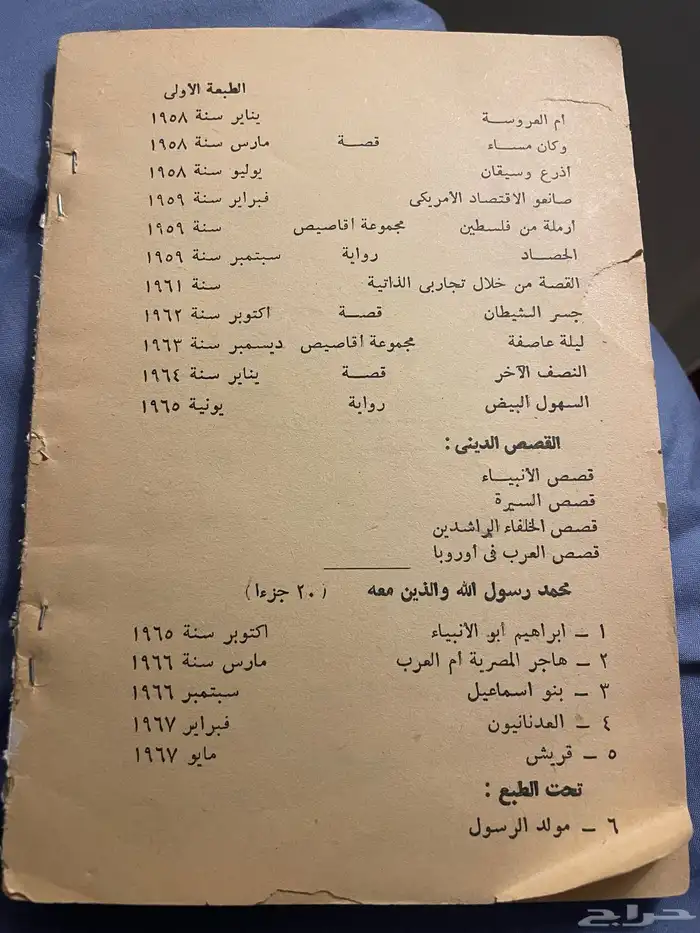 الطبعة الأولى
أم العروسة يناير سنة ١٩٥٨
وكان مساء قصة مارس سنة ١٩٥٨
أذرع وسيقان يوليو سنة ١٩٥٨
صانعو الاقتصاد الأمريكى فبراير سنة ١٩٥٩
أرملة من فلسطين مجموعة أقاصيص سنة ١٩٥٩
الحصاد رواية سبتمبر سنة ١٩٥٩
القصة من خلال تجاربى الذاتية سنة ١٩٦١
جسر الشيطان قصة اكتوبر سنة ١٩٦٢
ليلة عاصفة مجموعة أقاصيص ديسمبر سنة ١٩٦٣
النصف الآخر قصة يناير سنة ١٩٦٤
السهول البيض رواية يونية ١٩٦٥
القصص الدينى :
قصص الأنبياء
قصص السيرة
قصص الخلفاء الراشدين
قصص العرب فى أوروبا
محمد رسول الله والذين معه (٢٠ جزءا)
١ – ابراهيم أبو الأنبياء اكتوبر سنة ١٩٦٥
٢ – هاجر المصرية أم العرب مارس سنة ١٩٦٦
٣ – بنو اسماعيل سبتمبر ١٩٦٦
٤ – العدنانيون فبراير ١٩٦٧
٥ – قريش مايو ١٩٦٧
تحت الطبع :
٦ – مولد الرسول
حراج